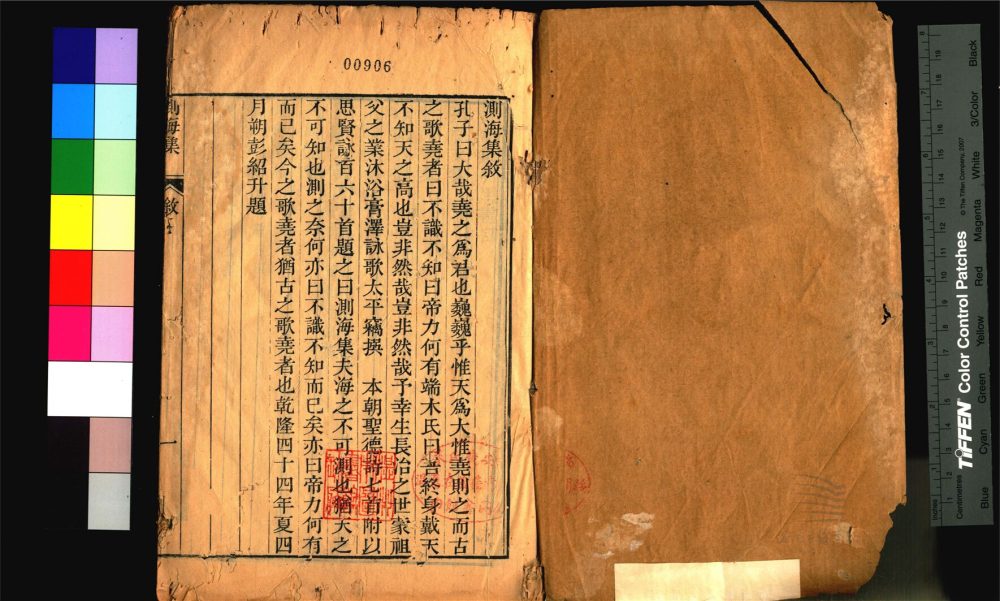 00906
測海集敘
孔子曰大哉堯之為君也巍巍乎惟天為大惟堯則之而古
之歌堯者曰不識不知曰帝力何有端木氏曰吾終身戴天
不知天之高也豈非然哉豈非然哉予幸生長治之世蒙祖
父之業沐浴膏澤詠歌太平竊撰 本朝聖德詩七首附以
思賢詠百六十首題之曰測海集夫海之不可測也猶天之
不可知也測之奈何亦曰不識不知而已矣亦曰帝力何有
而已矣今之歌堯者猶古之歌堯者也乾隆四十四年夏四
月朔彭紹升題
測海集
敘
一
TIFFEN Color Control Patches
© The Tiffen Company, 2007
Inches
Centimetres
Blue
Cyan
Green
Yellow
Red
Magenta
White
3/Color
Black